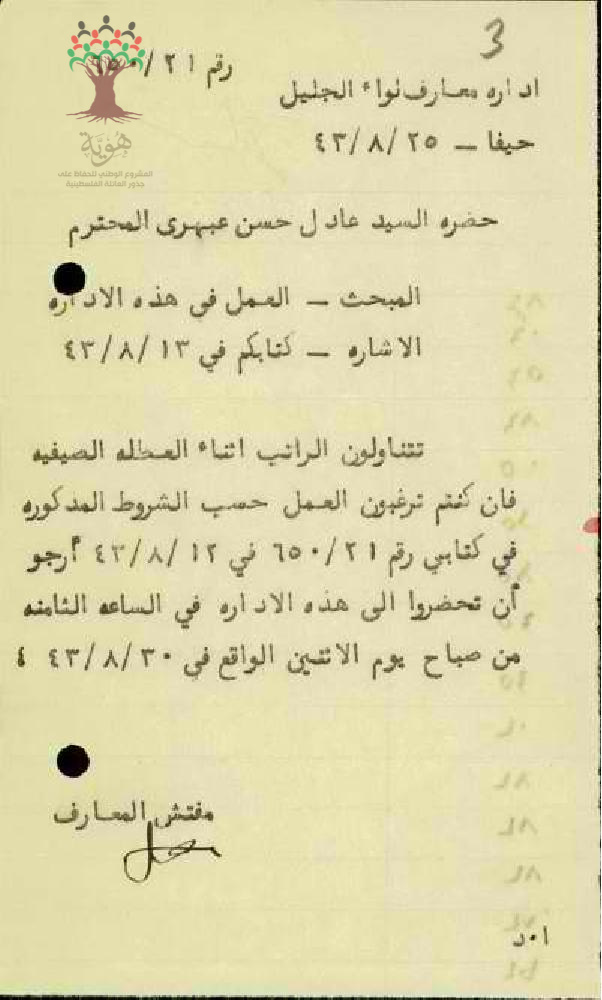 3
رقم ٦٥٠/٢١
اداره معارف لواء الجليل
حيفا – ٤٣/٨/٢٥
هوية
المشروع الوطني للحفاظ على
جذور العائلة الفلسطينية
حضره السيد عادل حسن عبهرى المحترم
المبحث – العمل فى هذه الاداره
الاشاره – كتابكم في ٤٣/٨/١٣
تتناولون الراتب اثناء العطله الصيفيه
فان كنتم ترغبون العمل حسب الشروط المذكوره
في كتابي رقم ٦٥٠/٢١ في ٤٣/٨/١٢ أرجو
أن تحضروا الى هذه الاداره في الساعه الثامنه
من صباح يوم الاثنين الواقع فى ٤٣/٨/٣٠ ٤
مفتش المعارف
ا٠د